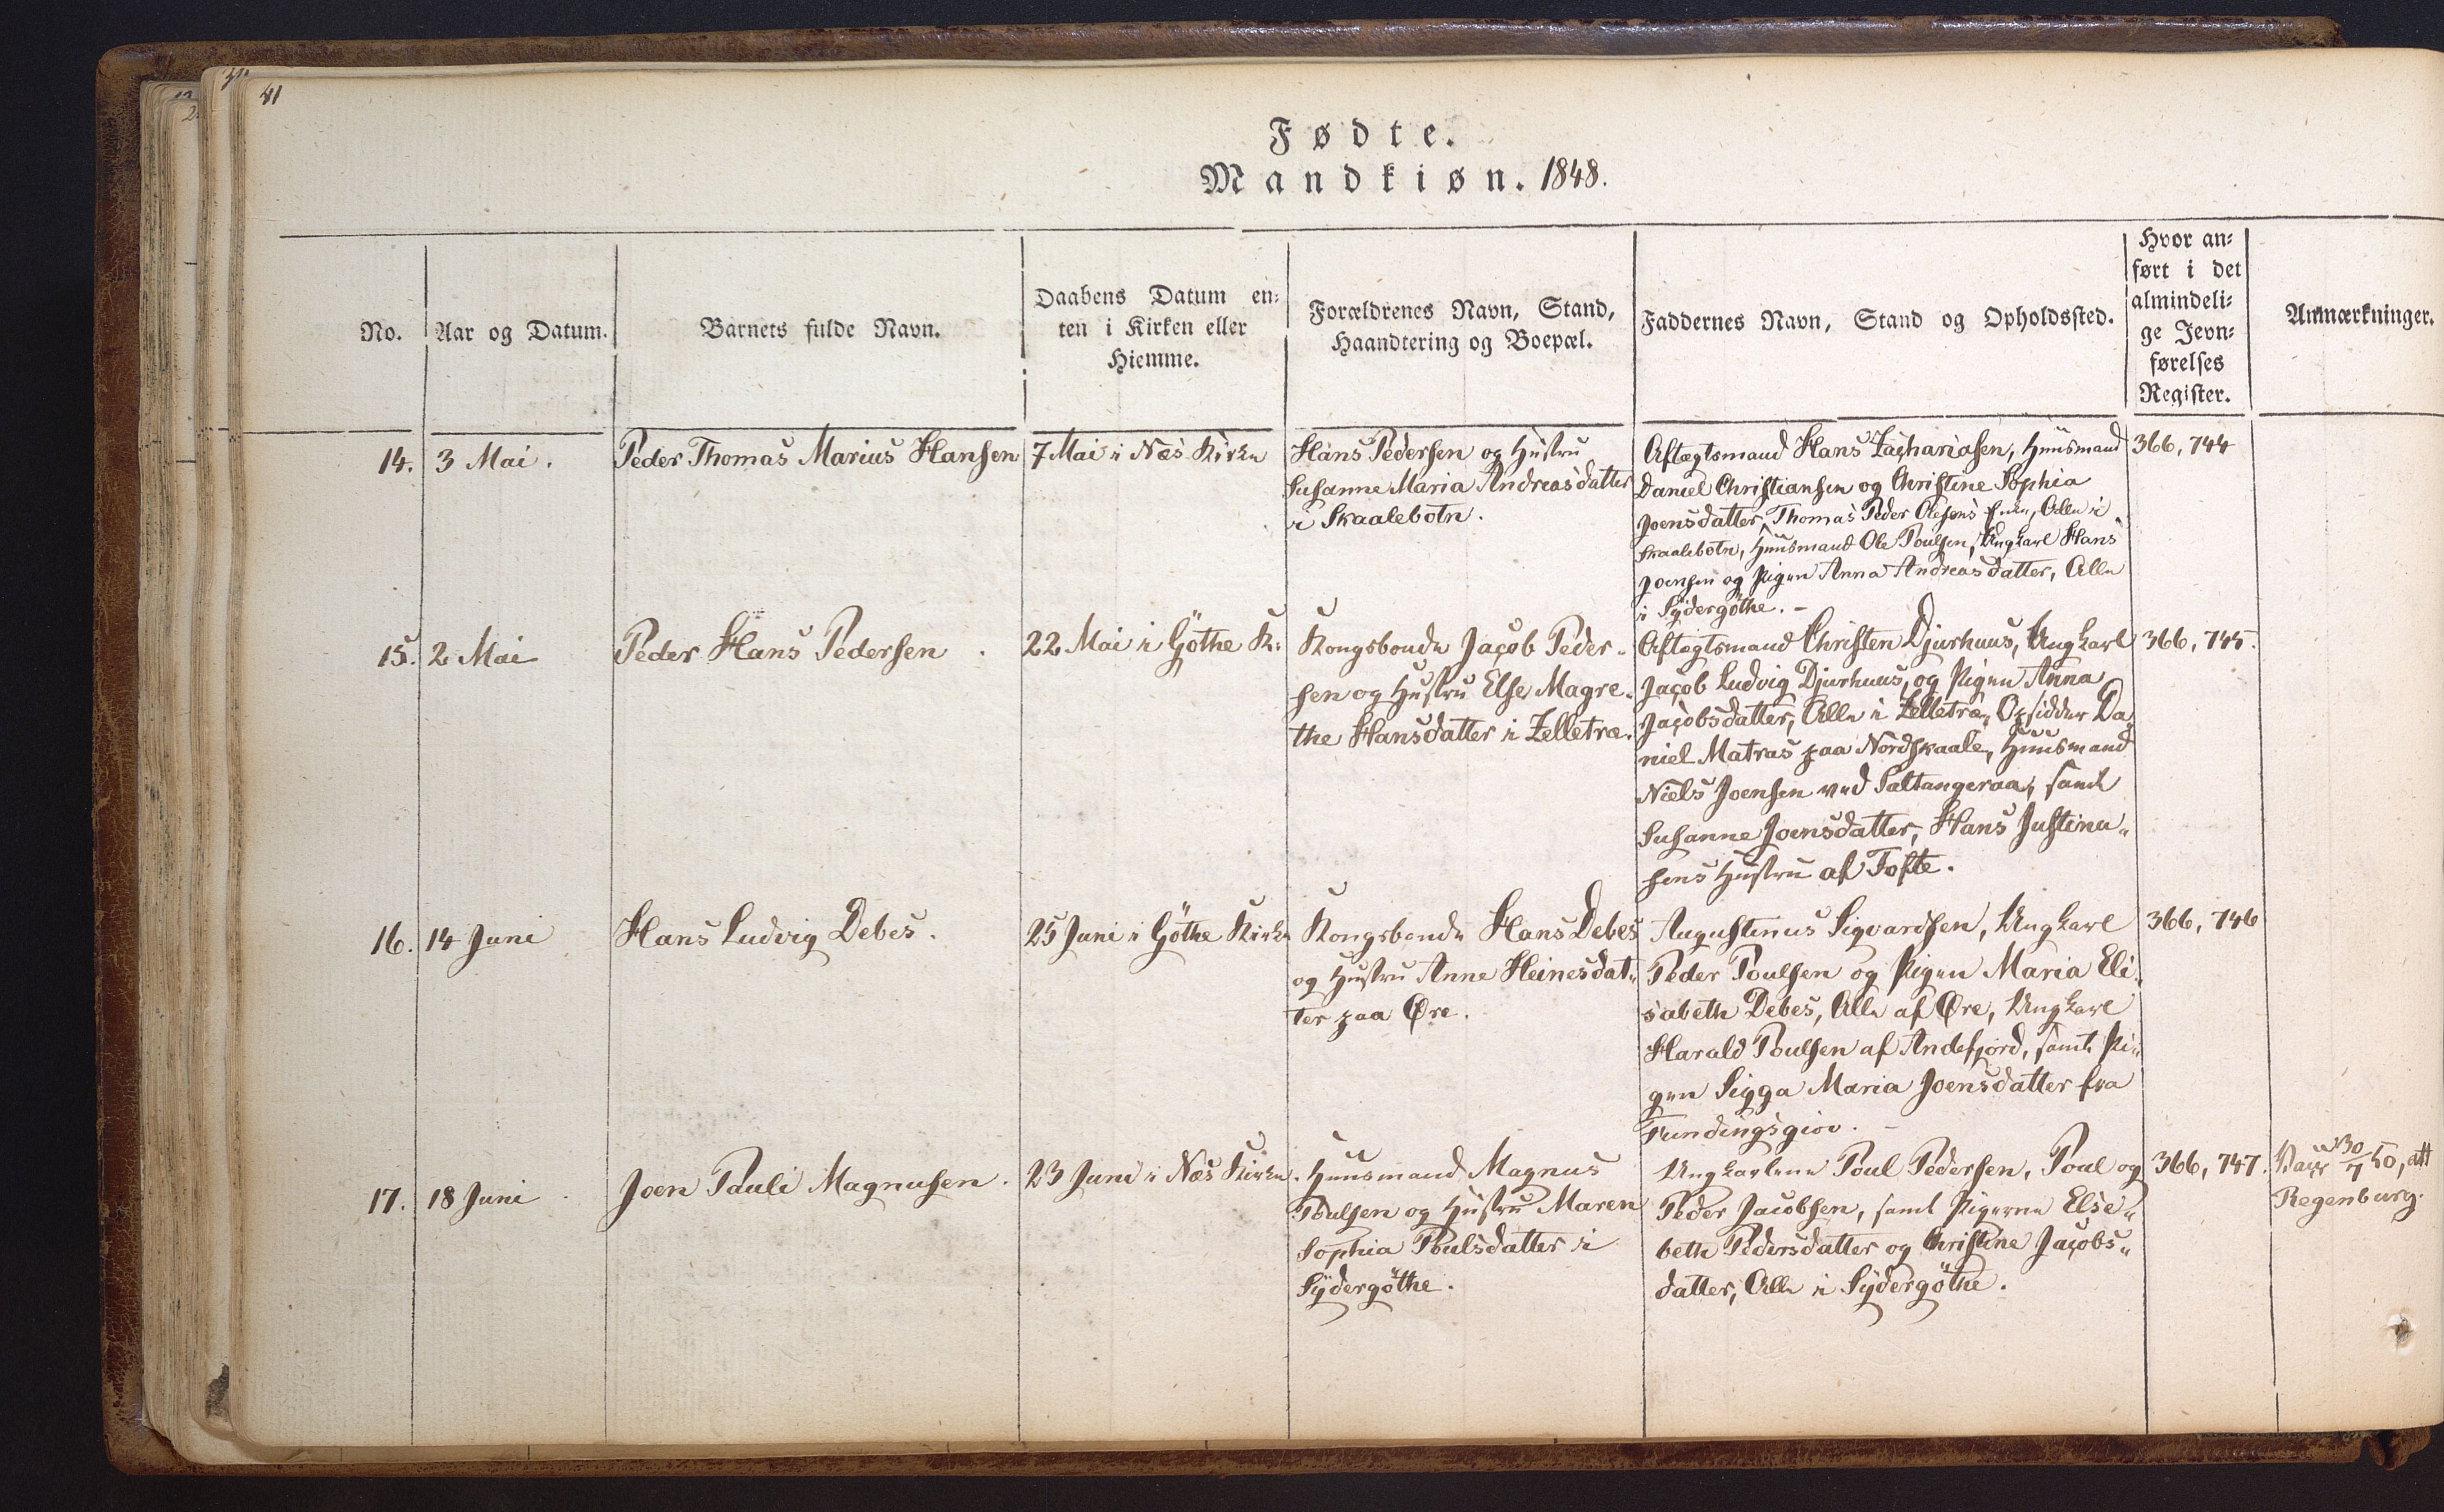 41
Fødte.
Mandkiøn. 1848.
No.
Aar og Datum.
Barnets fulde Navn.
Daabens Datum en-
ten i Kirken eller
Hiemme.
Forældrenes Navn, Stand,
Haandtering og Boepæl.
Faddernes Navn, Stand og Opholdssted.
Hvor an-
ført i det
almindeli-
ge Jevn-
førelses
Register.
Anmærkninger.
14.
3 Mai.
Peder Thomas Marius Hansen
7 Mai i Næs Kirke
Hans Pedersen og Hustru
Susanne Maria Andreasdatter
i Skaalebotn.
Aftægtsmand Hans Zachariasen, Huusmand
Daniel Christiansen og Christine Sophia
Joensdatter, Thomas Peder Olesens Enke, Alle i
Skaalebotn, Huusmand Ole Poulsen, Ungkarl Hans
Joensen og Pigen Anna Andreasdatter, Alle
i Sydergøthe. -
366, 744
15.
2 Mai
Peder Hans Pedersen.
22 Mai i Göthe K:
Kongsbonde Jacob Peder-
sen og Hustru Else Magre-
the Hansdatter i Zelletræ.
Aftægtsmand Christen Djurhuus, Ungkarl
Jacob Ludvig Djurhuus, og Pigen Anna
Jacobsdatter, Alle i Zelletræ, Opsidder Da-
niel Matras paa Nordskaale, Huusmand
Niels Joensen ved Saltangeraa, samt
Susanne Joensdatter, Hans Justinu-
sens Hustru af Tofte.
366, 745.
16.
14 Juni
Hans Ludvig Debes.
25 Juni i Göthe Kirke
Kongsbonde Hans Debes
og Hustru Anne Heinesdat-
ter paa Øre.
Augustinus Sigvardsen, Ungkarl
Peder Poulsen og Pigen Maria Eli-
sabeth Debes, Alle af Øre, Ungkarl
Harald Poulsen af Andefjord, samt Pi-
gen Sigga Maria Joensdatter fra
Fundingsgiov. -
366, 746
17.
18 Juni.
Joen Pauli Magnusen.
23 Juni i Næs Kirke.
Huusmand Magnus
Poulsen og Hustru Maren
Sophia Poulsdatter i
Sydergöthe.
Ungkarlene Poul Pedersen, Poul og
Peder Jacobsen, samt Pigerne Else-
beth Pedersdatter og Christine Jacobs-
datter, Alle i Sydergöthe.
366, 747.
Vacc 30/7 50, att
Regenburg.